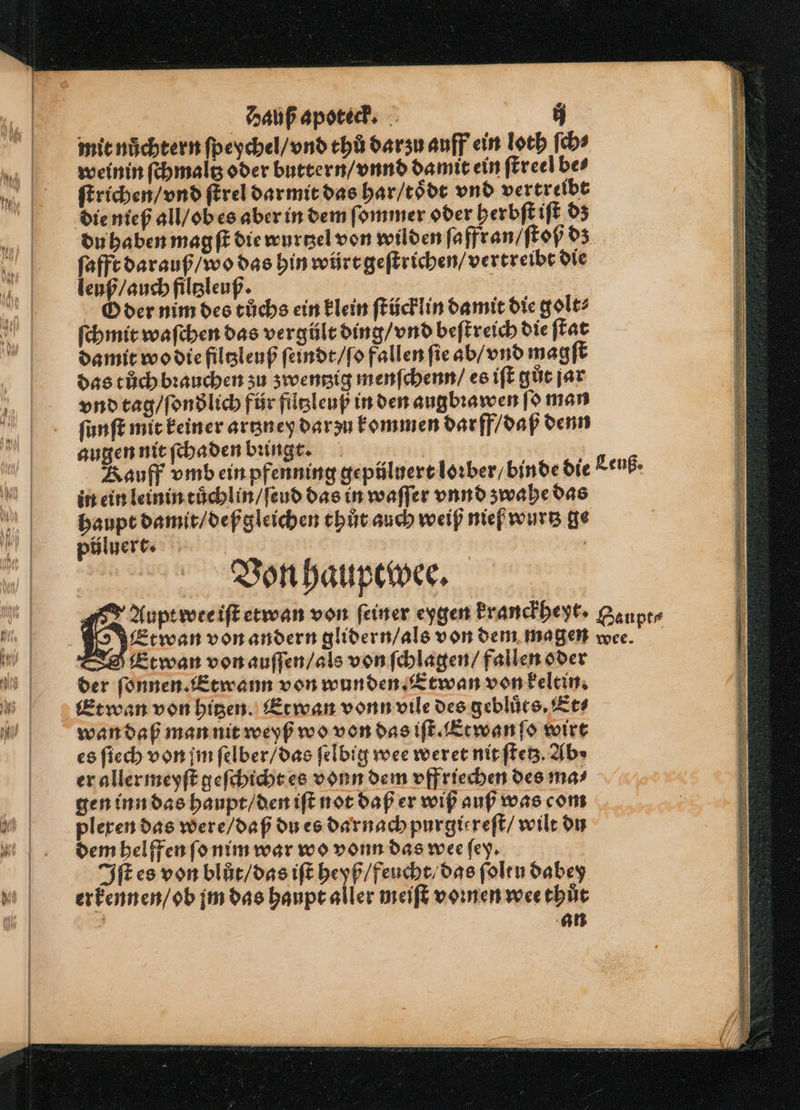 Hauß apoteck. ij
mit nuͤchtern ſpeychel/vnd thuͦ darzu auff ein loth ſch⸗
weinin ſchmaltz oder buttern/vnnd damit ein ſtreel be⸗
ſtrichen/vnd ſtrel darmit das har/toͤdt vnd vertreibt
die nieß all/ob es aber in dem ſommer oder herbſt iſt dz
du haben magſt die wurtzel von wilden ſaffran/ſtoß dz
ſafft darauß/wo das hin würt geſtrichen/vertreibt die
leuß/auch filtzleuß.
Oder nim des tuͦchs ein klein ſtücklin damit die golt⸗
ſchmit waſchen das vergült ding/vnd beſtreich die ſtat
damit wo die filtzleuß ſeindt/ſo fallen ſie ab/vnd magſt
das tuͦch bꝛauchen zu zwentzig menſchenn/ es iſt guͦt jar
vnd tag/ſondͤlich für filtzleuß in den augbꝛawen ſo man
ſunſt mit keiner artzney darzu kommen darff/daß denn
augen nit ſchaden bꝛingt.
Kauff vmb ein pfenning gepüluert loꝛber/binde die
Leuß.
in ein leinin tuͤchlin/ſeud das in waſſer vnnd zwahe das
haupt damit/deßgleichen thuͦt auch weiß nieß wurtz ge
püluert.
Von hauptwee.
HAupt wee iſt etwan von ſeiner eygen kranckheyt.
Haupt⸗
Etwan von andern glidern/als von dem magen
wee.
Etwan von auſſen/als von ſchlagen/ fallen oder
der ſonnen. Etwann von wunden. Etwan von keltin.
Etwan von hitzen. Etwan vonn vile des gebluͤts. Et⸗
wan daß man nit weyß wo von das iſt. Etwan ſo wirt
es ſiech von jm ſelber/das ſelbig wee weret nit ſtetz. Ab⸗
er aller meyſt geſchicht es vonn dem vffriechen des ma⸗
gen inn das haupt/den iſt not daß er wiß auß was com
plexen das were/daß du es darnach purgiereſt/ wilt du
dem helffen ſo nim war wo vonn das wee ſey.
Iſt es von bluͦt/das iſt heyß/feucht/das ſoltu dabey
erkennen/ob jm das haupt aller meiſt voꝛnen wee thuͦt
an